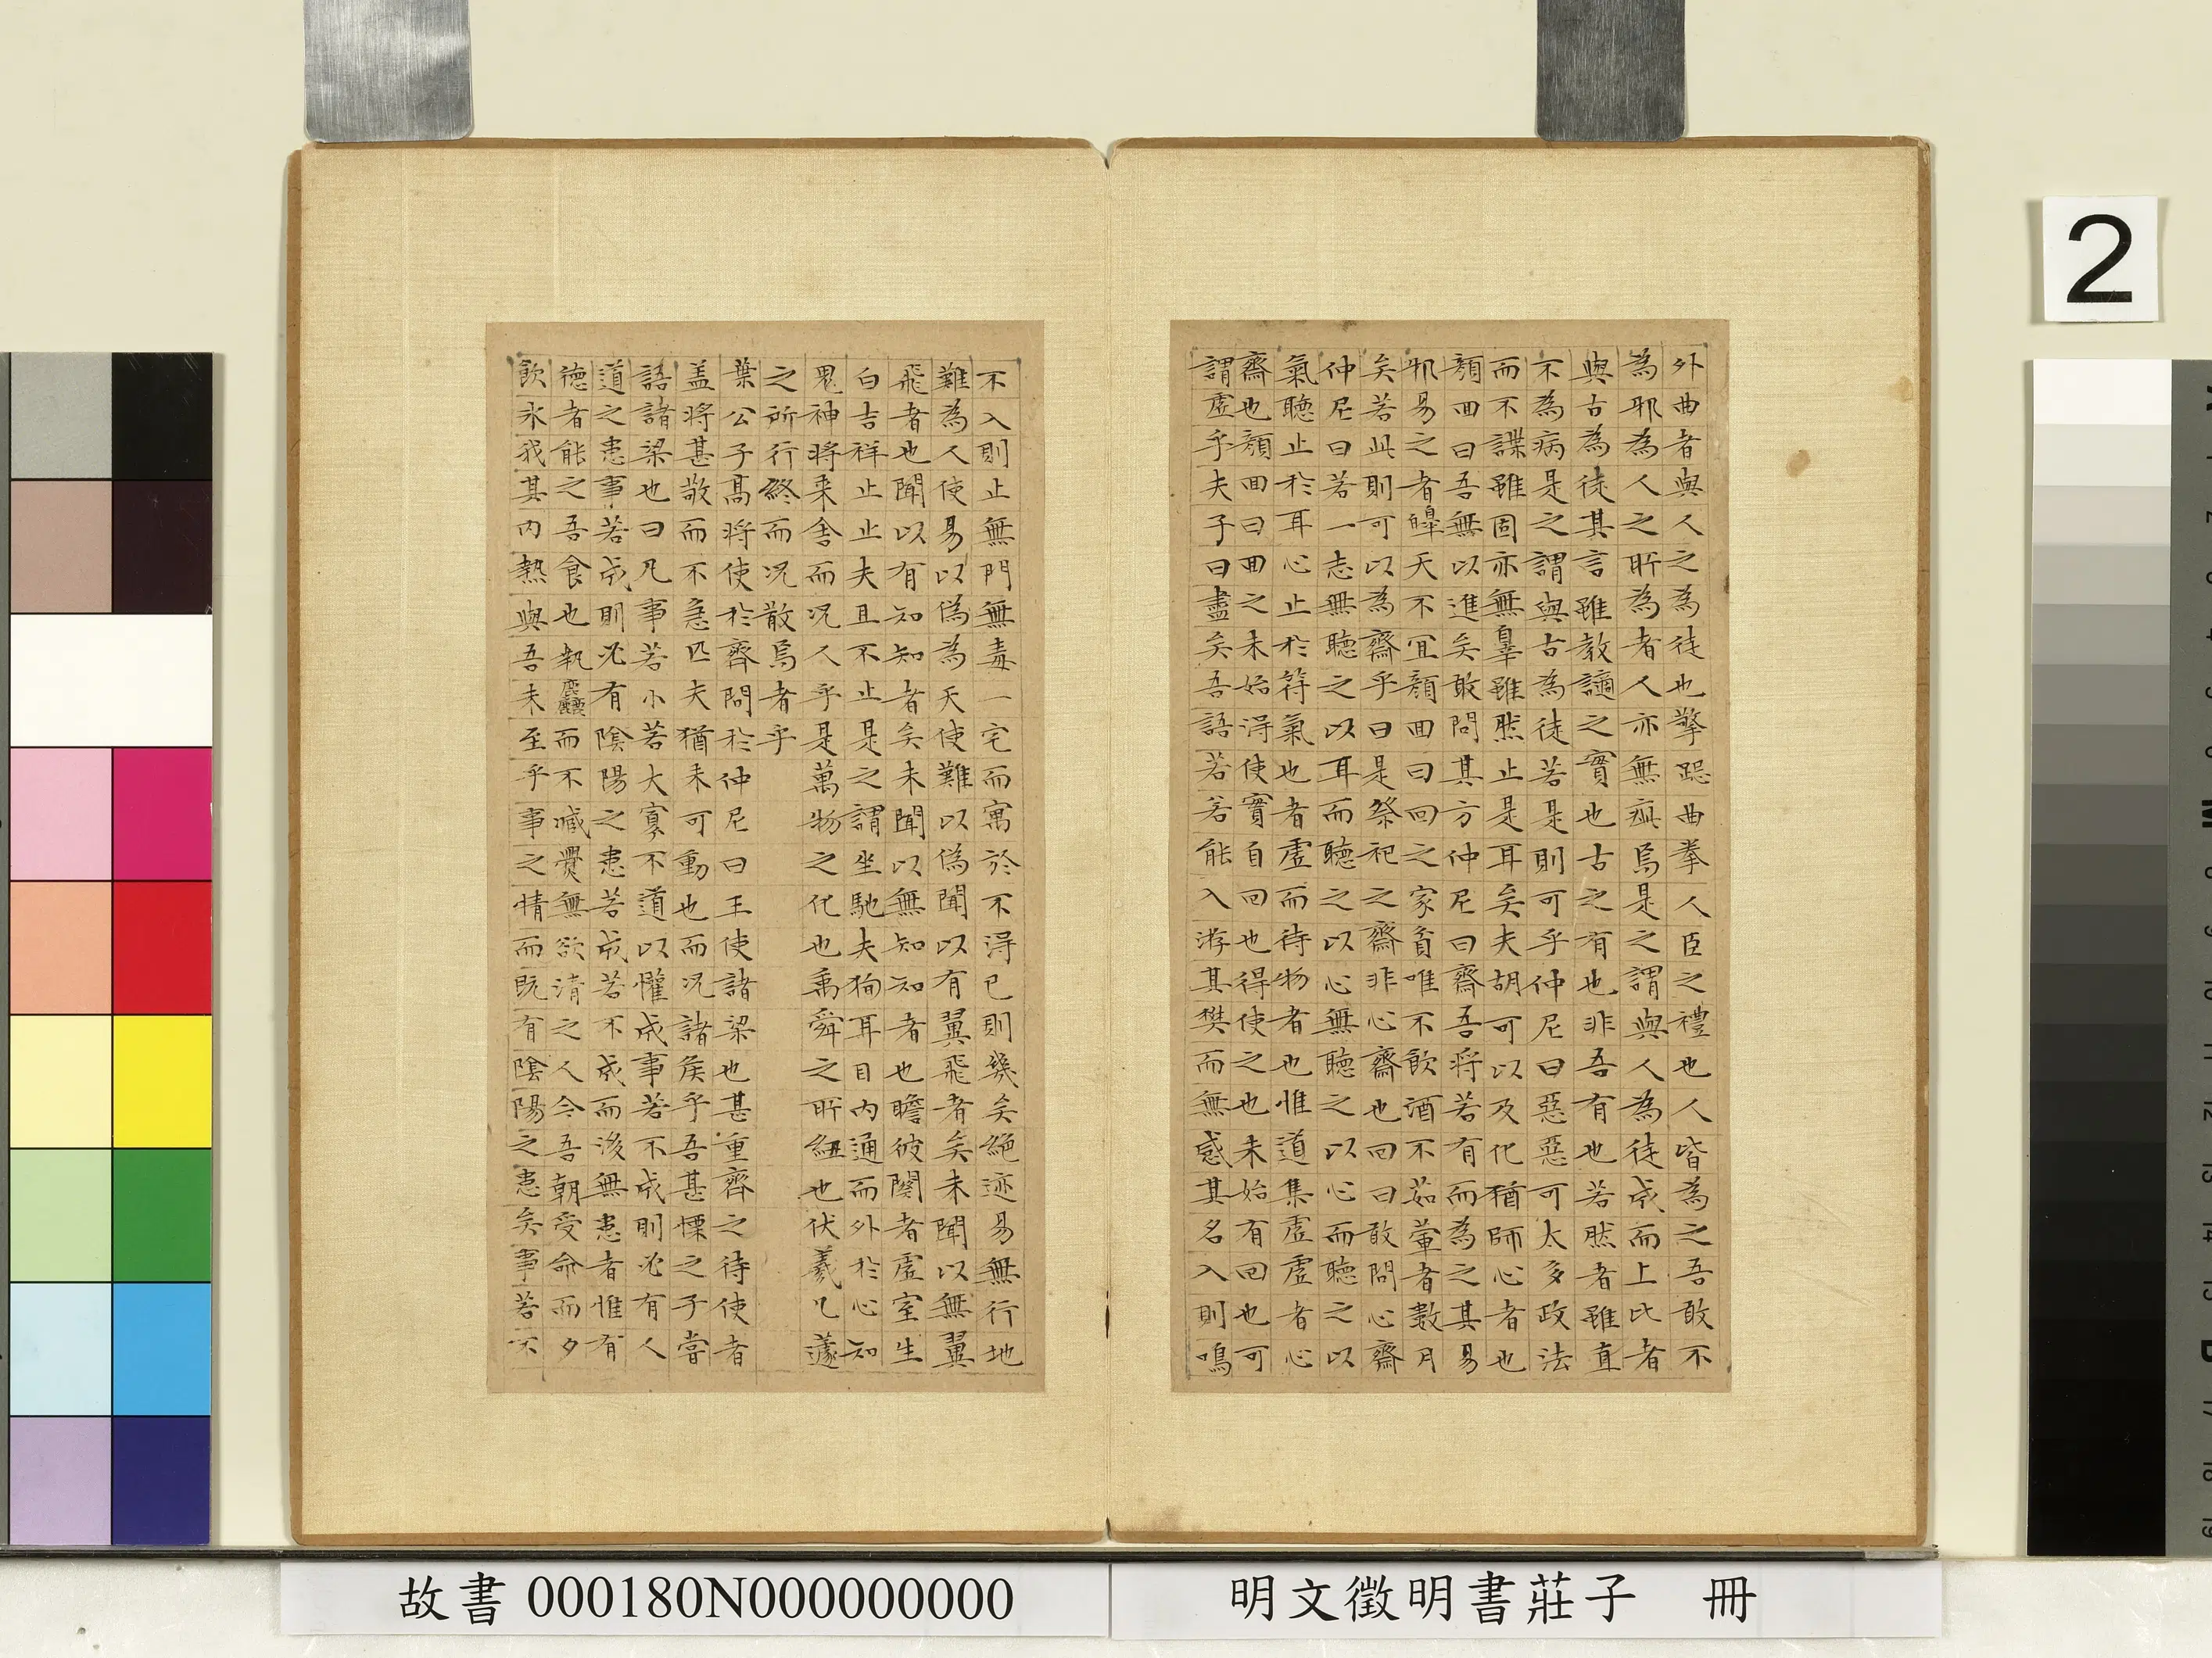 外曲者與人之為徒也擎跽曲拳人臣之禮也人皆為之吾敢不
為邪為人之所為者人亦無疵焉是之謂與人為徒成而上比者
與古為徒其言雖教讁之實也古之有也非吾有也若然者雖直
不為病是之謂與古為徒若是則可乎仲尼曰惡惡可太多政法
而不諜雖固亦無辠雖然止是耳矣夫胡可以及化猶師心者也
顏回曰吾無以進矣敢問其方仲尼曰齋吾將若有而為之其易
邪易之者皞天不宜顏回曰回之家貧唯不飲酒不茹葷者數月
矣若此則可以為齋乎曰是祭祀之齋非心齋也回曰敢問心齋
仲尼曰若一志無聽之以耳而聽之以心無聽之以心而聽之以
氣聽止於耳心止於符氣也者虛而待物者也惟道集虛虛者心
齋也顏回曰回之未始得使實自回也得使之也未始有回也可
謂虛乎夫子曰盡矣吾語若若能入游其樊而無感其名入則鳴
不入則止無門無毒一宅而寓於不得已則幾矣絕迹易無行地
難為人使易以偽為天使難以偽聞以有翼飛者矣未聞以無翼
飛者也聞以有知知者矣未聞以無知知者也瞻彼闋者虛室生
白吉祥止止夫且不止是之謂坐馳夫狥耳目內通而外於心知
鬼神將來舍而況人乎是萬物之化也禹舜之所紐也伏羲几蘧
之所行終而況散焉者乎
葉公子高將使於齊問於仲尼曰王使諸梁也甚重齊之待使者
盖將甚敬而不急匹夫猶未可動也而況諸侯乎吾甚慄之子嘗
語諸梁也曰凡事若小若大寡不道以懽成事若不成則必有人
道之患事若成則必有陰陽之患若成若不成而後無患者惟有
德者能之吾食也執麤而不臧爨無欲清之人今吾朝受命而夕
飲氷我其內熱與吾未至乎事之情而既有陰陽之患矣事若不
2
明文徵明書莊子 冊
故書000180N000000000